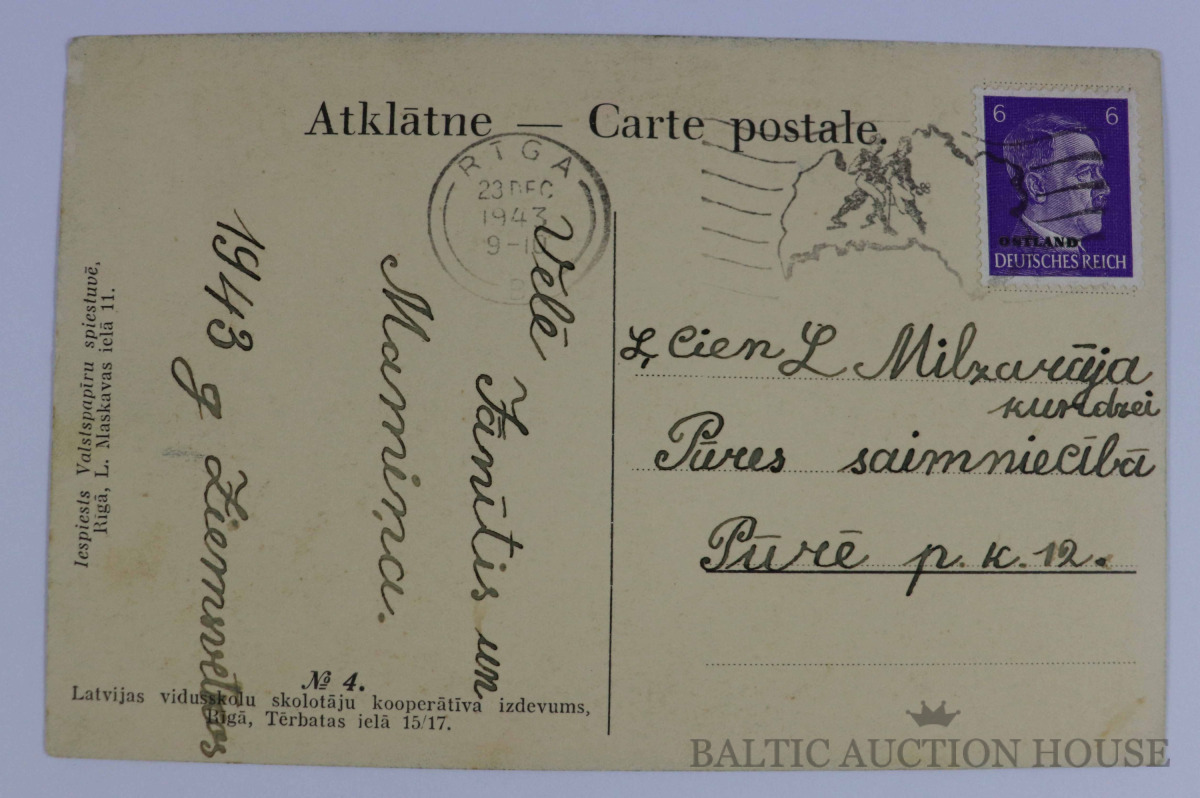 Atklātne — Carte postale.
RĪGA
23 DEC
1943
6 6
OSTLAND
DEUTSCHES REICH
Vēlē
Jānītis un
Mammiņa.
1943 g Ziemsvētkos
Ļ. Cien L Milzarāja
kundzei
Pūres saimniecībā
Pūrē p. k. 12.
Iespiests Valstspapīru spiestuvē,
Rīgā, L. Maskavas ielā 11.
№ 4.
Latvijas vidusskolu skolotāju kooperātīva izdevums,
Rīgā, Tērbatas ielā 15/17.
BALTIC AUCTION HOUSE